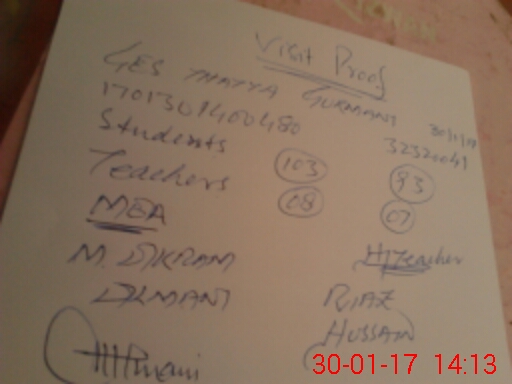 Visit Proof
GES THATTA GURMANI 30/1/17
1701301400480 32320041
Students 103 93
Teachers 08 07
MEA H/Teacher
M. IKRAM RIAZ
HUSSAIN
30-01-17 14:13